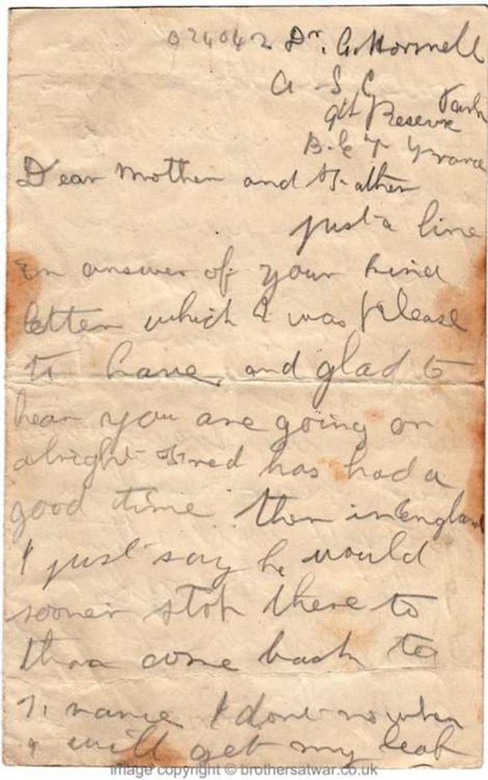 024042 Dr. G. Hornsell
A S C
9th Reserve Park
B. E F France
Dear Mother and Father
just a line
in answer of your kind
letter which I was please
to have, and glad to
hear you are going on
alright Fred has had a
good time then in England
I just say he would
sooner stop there to
than come back to
France I dont no when
I will get my leaf
image copyright © brothersatwar.co.uk